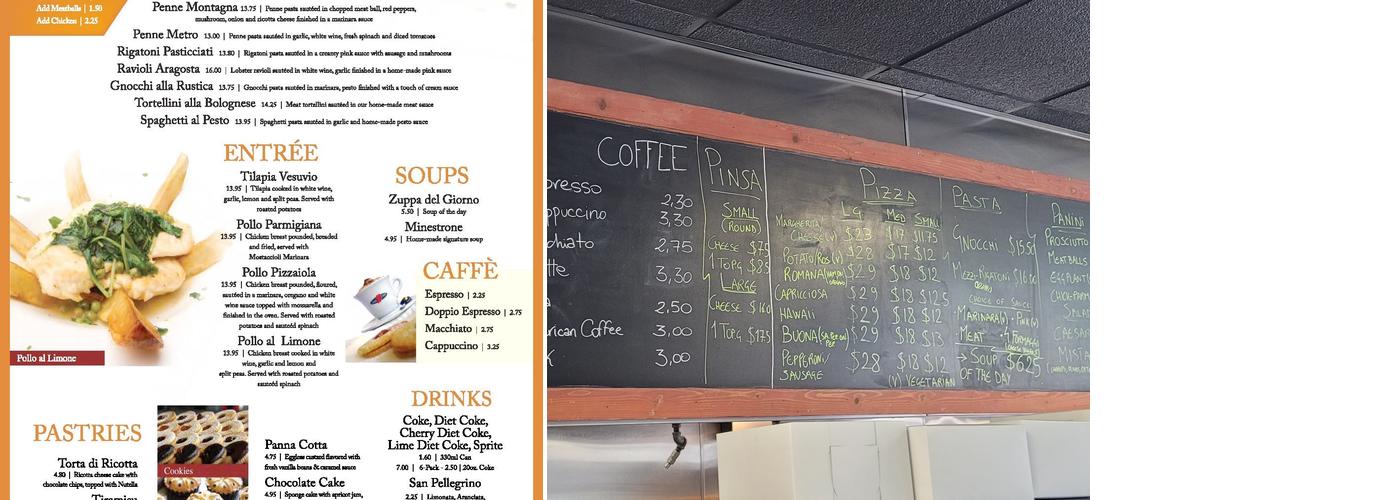 Add Meatballs | 1.50
Add Chicken | 2.25
Penne Montagna 13.75 | Penne pasta sautéed in chopped meat ball, red peppers,
mushroom, onion and ricotta cheese finished in a marinara sauce
Penne Metro 13.00 | Penne pasta sautéed in garlic, white wine, fresh spinach and diced tomatoes
Rigatoni Pasticciati 13.80 | Rigatoni pasta sautéed in a creamy pink sauce with sausage and mushrooms
Ravioli Aragosta 16.00 | Lobster ravioli sautéed in white wine, garlic finished in a home-made pink sauce
Gnocchi alla Rustica 13.75 | Gnocchi pasta sautéed in marinara, pesto finished with a touch of cream sauce
Tortellini alla Bolognese 14.25 | Meat tortellini sautéed in our home-made meat sauce
Spaghetti al Pesto 13.95 | Spaghetti pasta sautéed in garlic and home-made pesto sauce
ENTRÉE
Tilapia Vesuvio
13.95 | Tilapia cooked in white wine,
garlic, lemon and split peas. Served with
roasted potatoes
Pollo Parmigiana
13.95 | Chicken breast pounded, breaded
and fried, served with
Mostaccioli Marinara
Pollo Pizzaiola
13.95 | Chicken breast pounded, floured,
sautéed in a marinara, oregano and white
wine sauce topped with mozzarella and
finished in the oven. Served with roasted
potatoes and sautéed spinach
Pollo al Limone
13.95 | Chicken breast cooked in white
wine, garlic and lemon and
split peas. Served with roasted potatoes and
sautéed spinach
Pollo al Limone
SOUPS
Zuppa del Giorno
5.50 | Soup of the day
Minestrone
4.95 | Home-made signature soup
CAFFÈ
Espresso | 2.25
Doppio Espresso | 2.75
Macchiato | 2.75
Cappuccino | 3.25
DRINKS
Coke, Diet Coke,
Cherry Diet Coke,
Lime Diet Coke, Sprite
1.60 | 330ml Can
7.00 | 6-Pack - 2.50 | 20oz. Coke
San Pellegrino
2.25 | Limonata, Aranciata,
PASTRIES
Torta di Ricotta
4.80 | Ricotta cheese cake with
chocolate chips, topped with Nutella
Tiramisu
Cookies
Panna Cotta
4.75 | Eggless custard flavored with
fresh vanilla beans & caramel sauce
Chocolate Cake
4.95 | Sponge cake with apricot jam,
COFFEE
presso 2,30
ppuccino 3,30
chiato 2,75
tte 3,30
a 2,50
rican Coffee 3,00
K 3,00
PINSA
SMALL
(ROUND)
CHEESE $7.5
1 TOPG $8.5
LARGE
CHEESE $16.0
1 TOPG $17.5
PIZZA
LG MED SMALL
MARGHERITA
CHEESE (V) $23 $17 $11.75
POTATO/ROS (V) $28 $17 $12
ROMANA $29 $18 $12
CAPRICCIOSA $29 $18 $12.5
HAWAII $29 $18 $12.5
BUONA $29 $18 $13
PEPPERONI
SAUSAGE $28 $18 $12
(V) VEGETARIAN
PASTA
GNOCCHI $15.50
MEZZI-RIGATONI $16.00
CHOICE OF SAUCE
MARINARA (V) · PINK (V)
MEAT · 4 FORMAGGI
→ SOUP $6.25
OF THE DAY
PANINI
PROSCIUTTO
MEATBALLS
EGGPLANT
CHICK-PARM
SALAD
CAESAR
MISTA